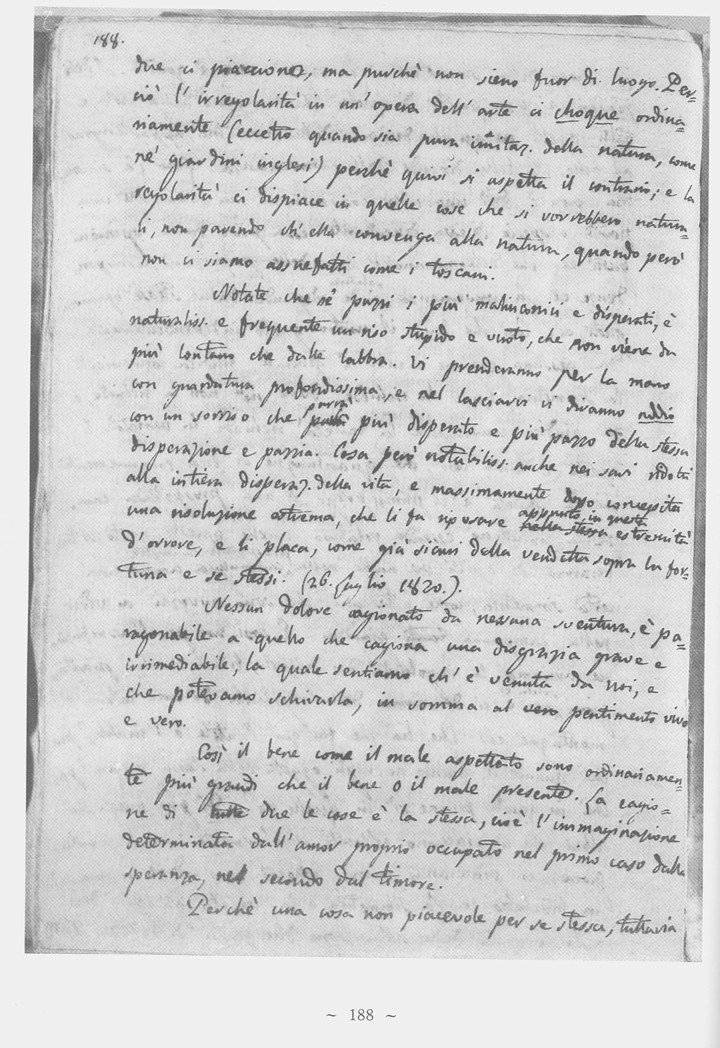 188.
due ci piacciono, ma purchè non sieno fuor di luogo. Per-
ciò l'irregolarità in un'opera dell'arte ci choque ordina-
riamente (eccetto quando sia pura imitaz. della natura, come
ne' giardini inglesi) perchè quivi si aspetta il contrario; e la
regolarità ci dispiace in quelle cose che si vorrebbero natura-
li, non parendo ch'ella convenga alla natura, quando però
non ci siamo assuefatti come i toscani.
Notate che ne' pazzi i più malinconici e disperati, è
naturaliss. e frequente un riso stupido e vuoto, che non viene da
più lontano che dalle labbra. Vi prenderanno per la mano
con guardatura profondissima, e nel lasciarvi vi diranno addio
con un sorriso che parrà più disperato e più pazzo della stessa
disperazione e pazzia. Cosa però notabiliss. anche nei savi ridotti
alla intiera disperaz. della vita, e massimamente dopo concepita
una risoluzione estrema, che li fa riposare appunto in questa
nella stessa estremità
d'orrore, e li placa, come già sicuri della vendetta sopra la for-
tuna e se stessi. (26. Luglio 1820.).
Nessun dolore cagionato da nessuna sventura, è pa-
ragonabile a quello che cagiona una disgrazia grave e
irrimediabile, la quale sentiamo ch'è venuta da noi, e
che potevamo schivarla, in somma al vero pentimento vivo
e vero.
Così il bene come il male aspettato sono ordinariamen-
te più grandi che il bene o il male presente. La cagio-
ne di tutte due le cose è la stessa, cioè l'immaginazione
determinata dall'amor proprio occupato nel primo caso dalla
speranza, nel secondo dal timore.
Perchè una cosa non piacevole per se stessa, tuttavia
~ 188 ~